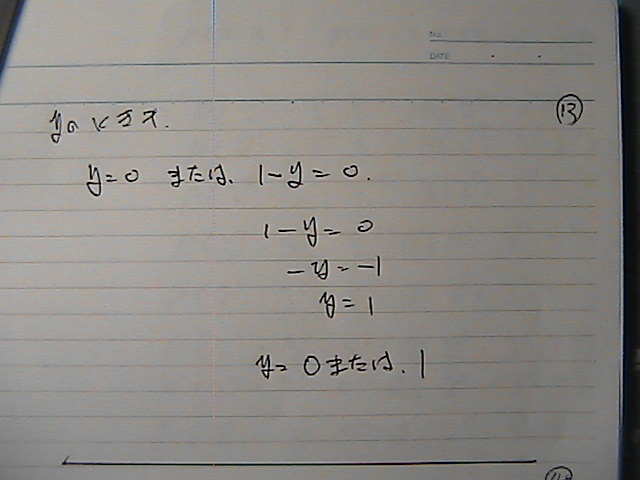 No.
DATE
⑬
y=0 または、1-y=0.
1-y=0
-y=-1
y=1
y=0または、1